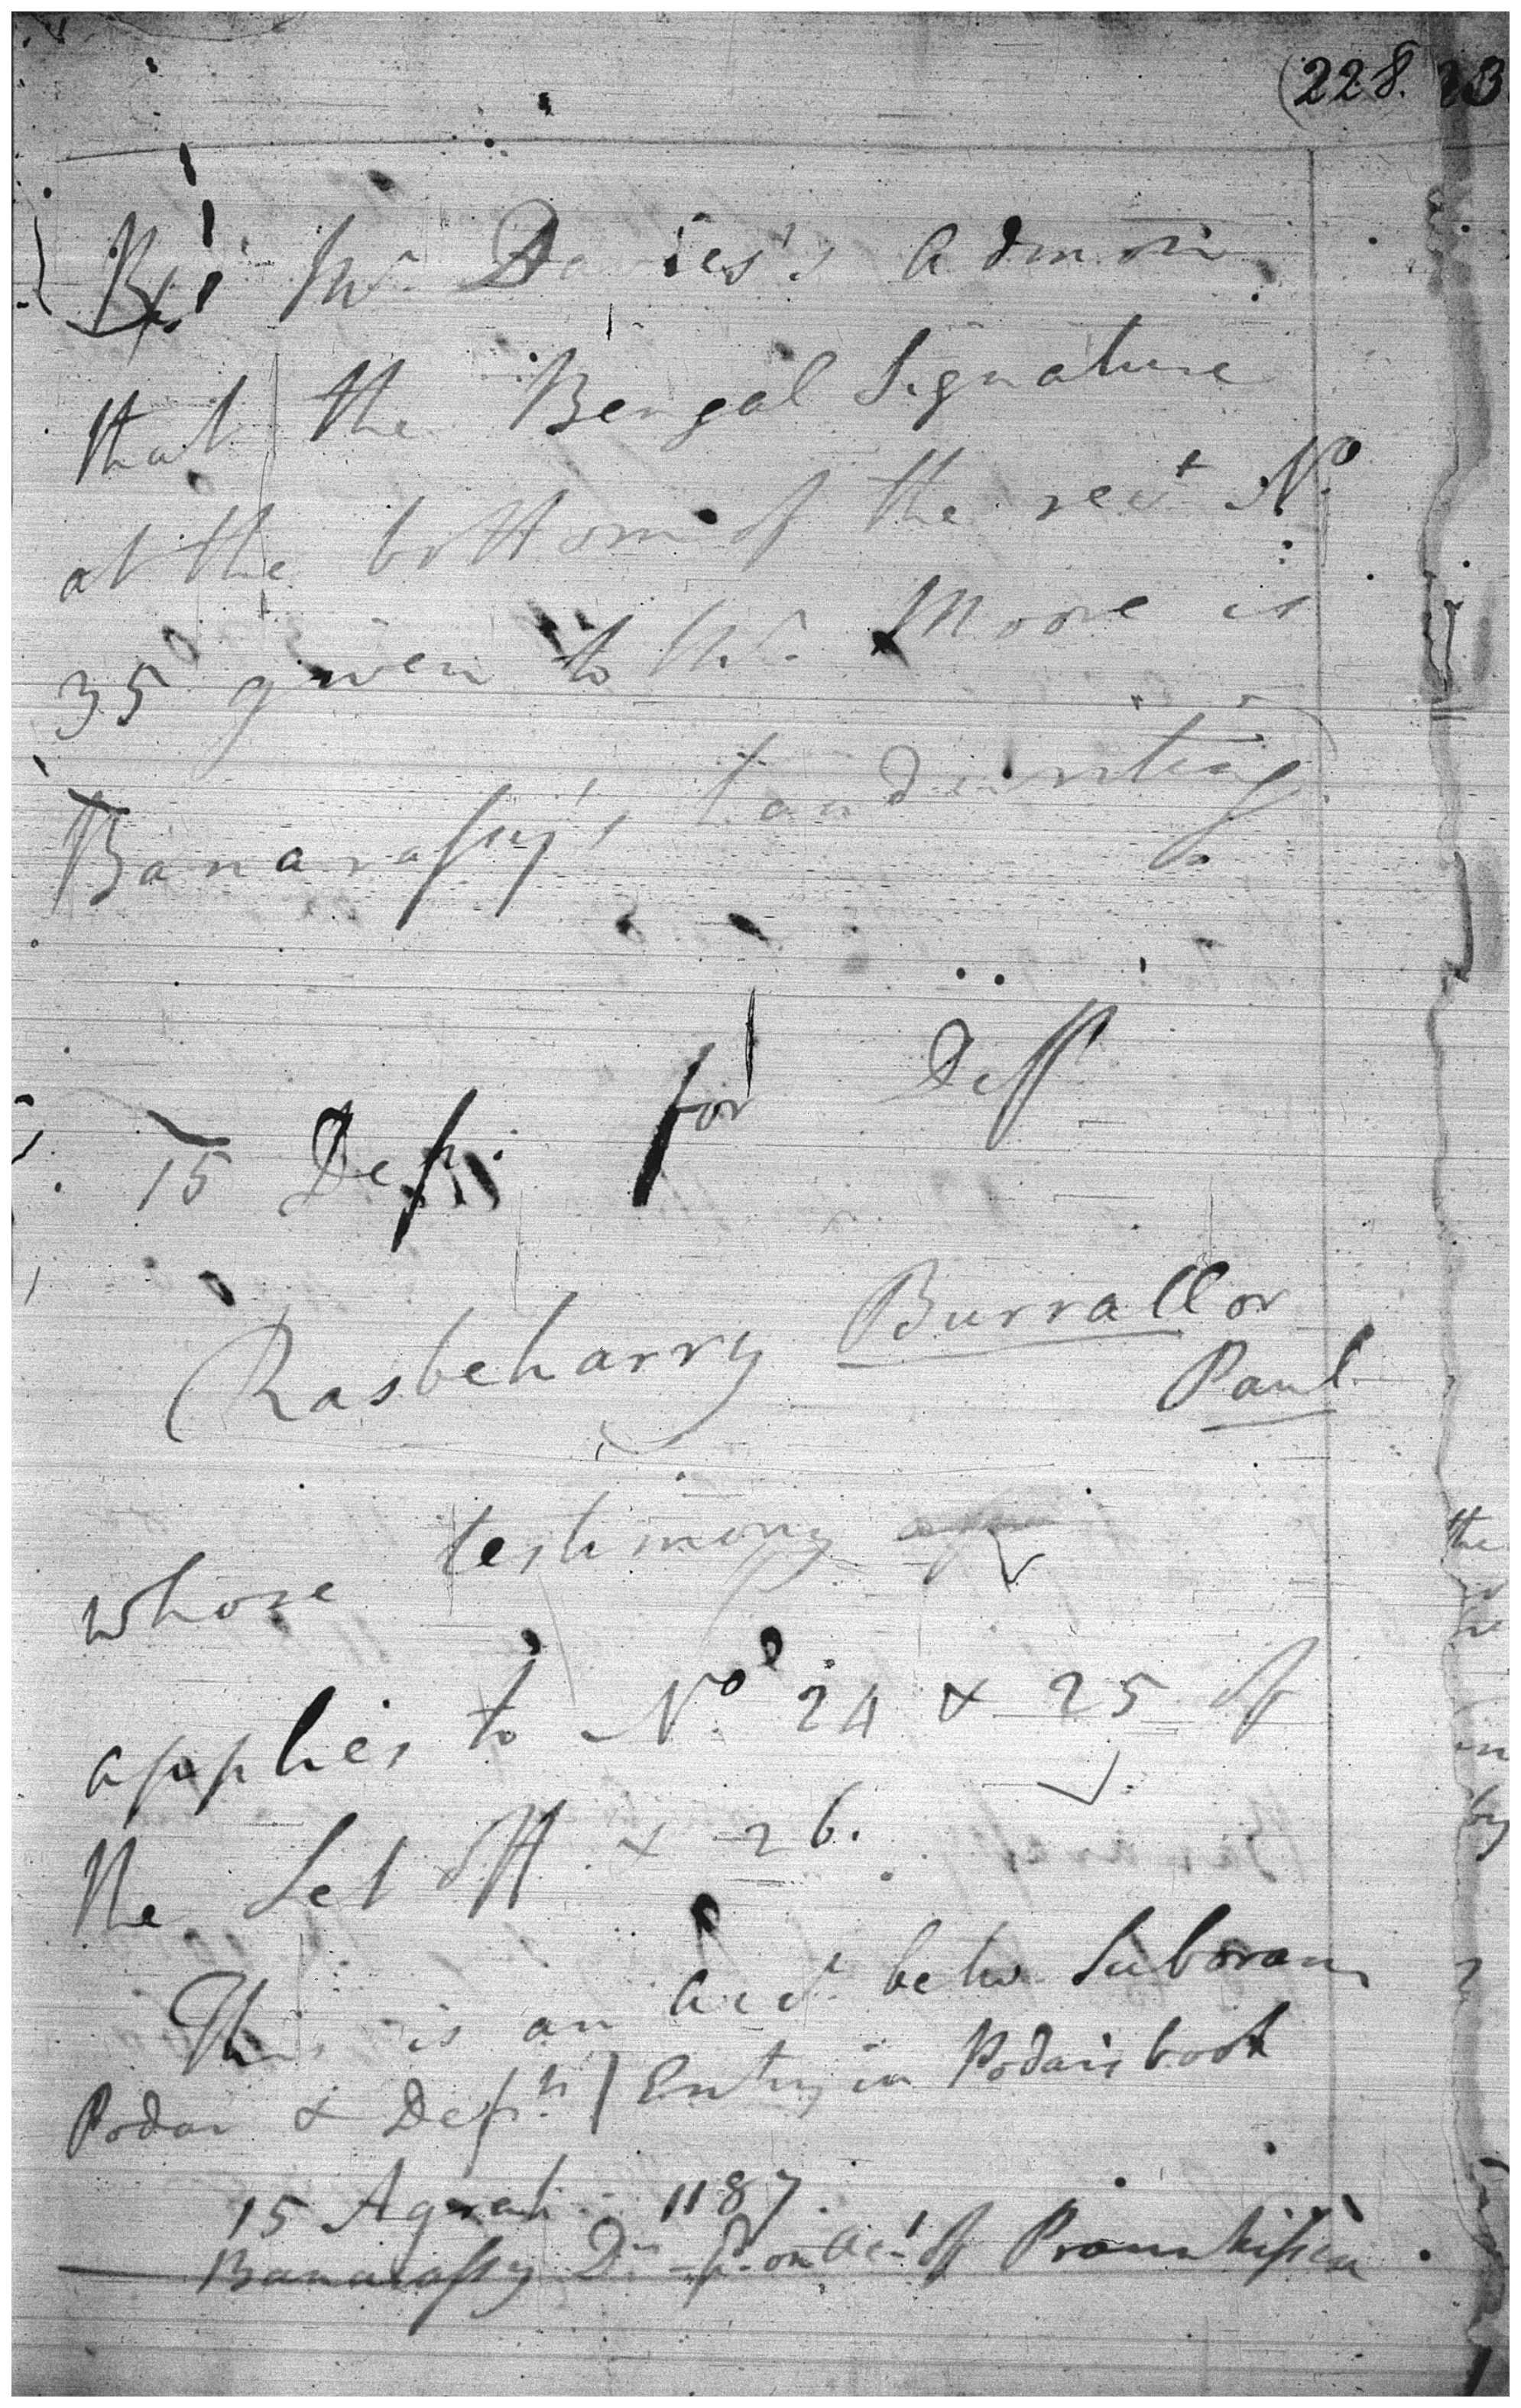 (228.
Mr. Davies's Admon
that the Bengal Signature
at the bottom of the rect No.
35 given to Mr. Moore is
Banarassy's handwriting
15 Depn. for Deft
Rasbeharry Burrall or
Paul
whose testimony
applies to No. 24 & 25 of
the Set Off & 26.
This is an Acct. betw. Suboram
Podar & Depts / Entry in Podar's book
15 Agrah. 1187.
Banarassy Dr on Acct. of Prounkissen